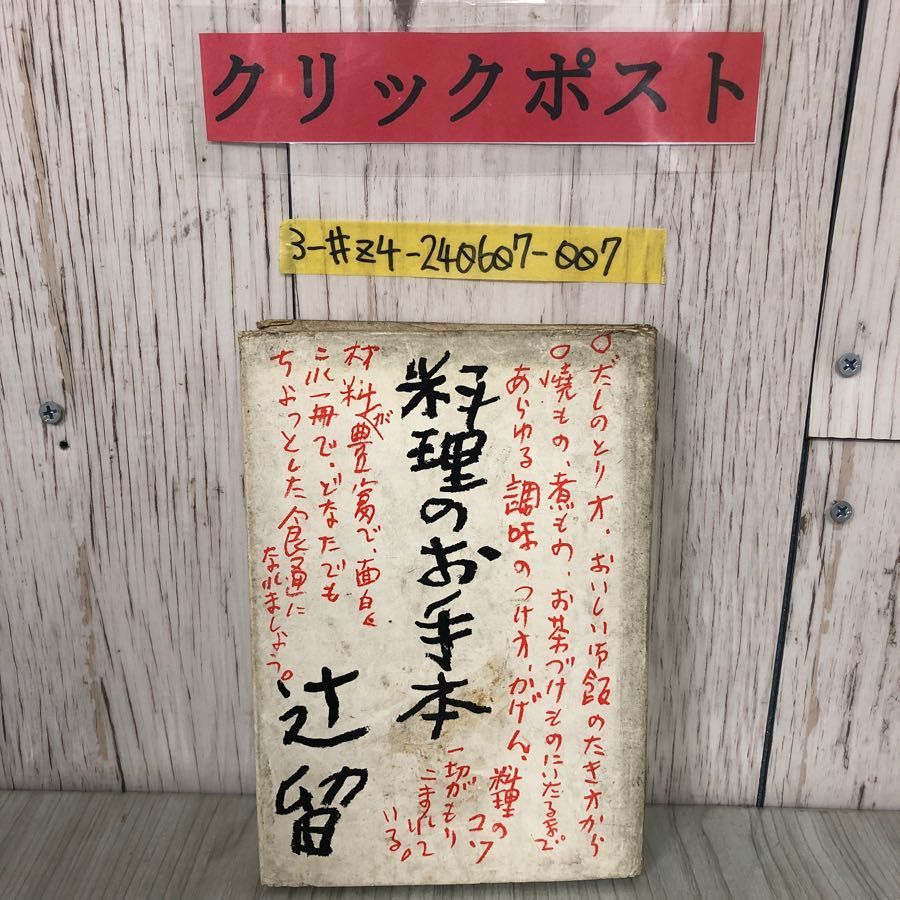 クリックポスト
3-#Z4-240607-007
○だしのとり方。おいしい御飯のたき方から
○焼もの、煮もの、お茶づけものにいたるまで
あらゆる調味のつけ方、かげん、料理のコツ
一切がもり
こまれて
いる。
料理のお手本
辻留
材料が豊富で、面白く
この一冊で、どなたでも
ちょっとした食通に
なれましょう。